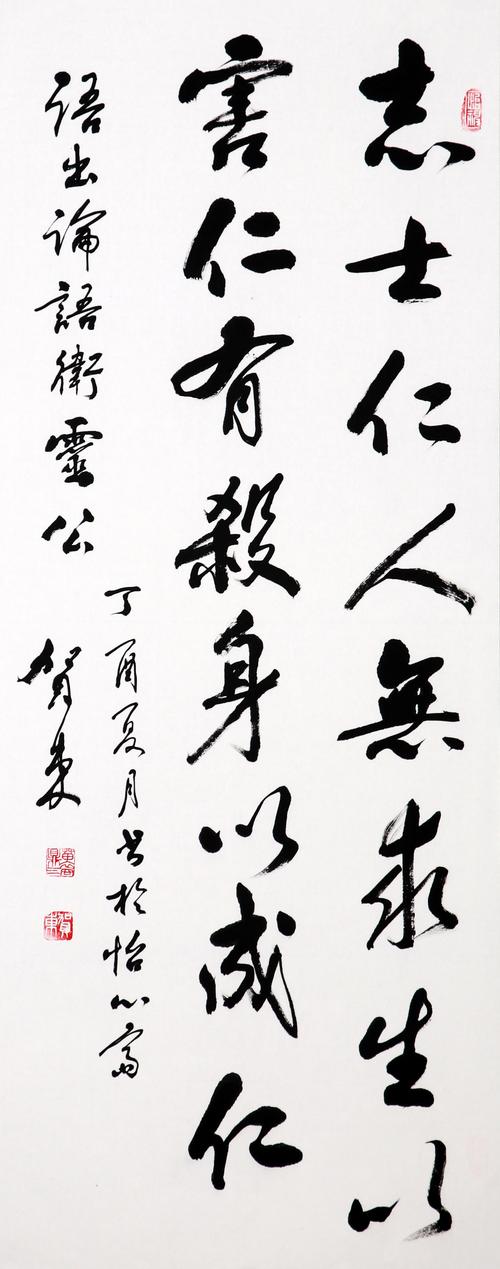 志士仁人無求生以
害仁有殺身以成仁
丁酉夏月书於怡心斋
語出論語衛靈公
賀東